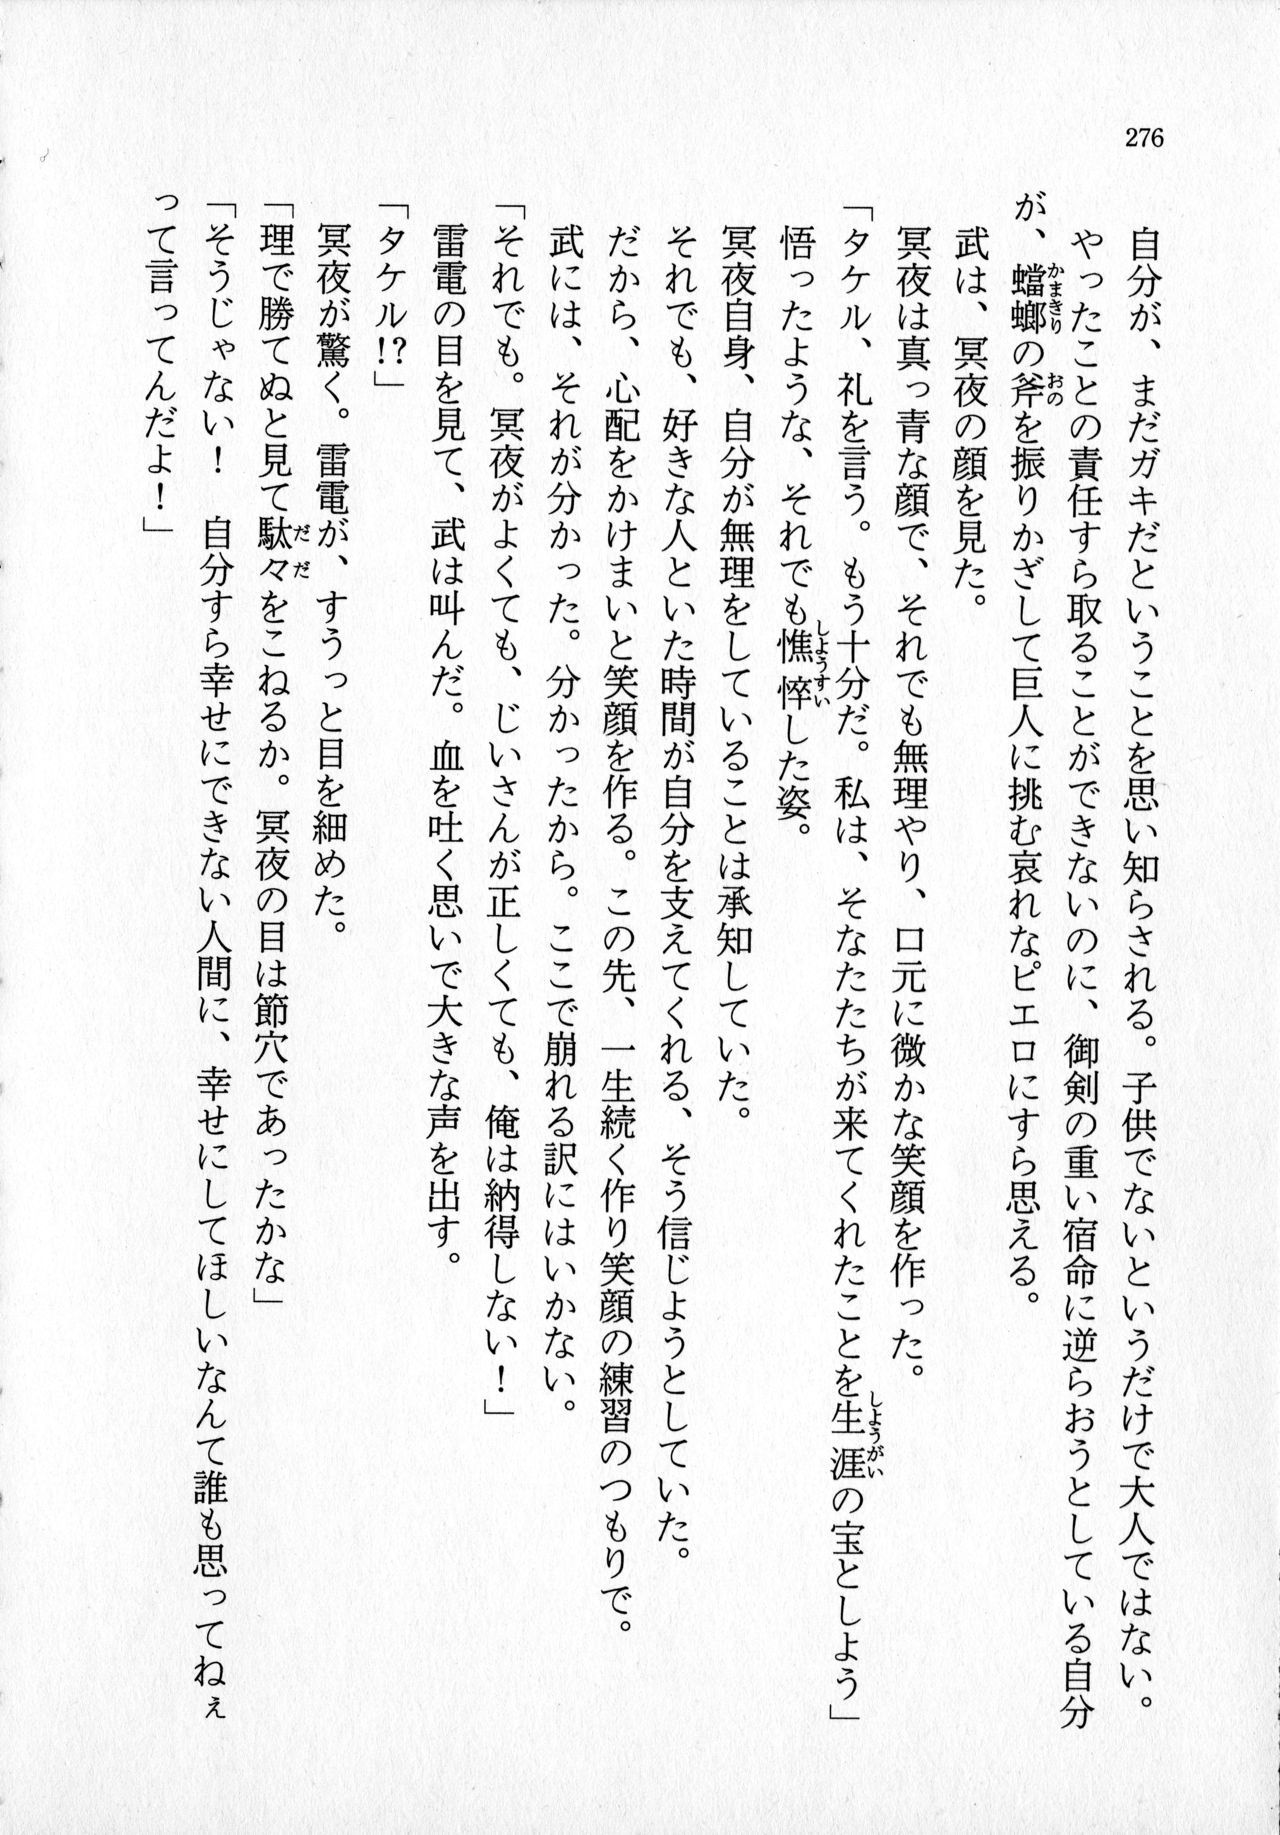 276
自分が、まだガキだということを思い知らされる。子供でないというだけで大人ではない。
やったことの責任すら取ることができないのに、御剣の重い宿命に逆らおうとしている自分
が、蟷螂の斧を振りかざして巨人に挑む哀れなピエロにすら思える。
かまきり
おの
武は、冥夜の顔を見た。
冥夜は真っ青な顔で、それでも無理やり、口元に微かな笑顔を作った。
「タケル、礼を言う。もう十分だ。私は、そなたたちが来てくれたことを生涯の宝としよう」
しようがい
悟ったような、それでも憔悴した姿。
しようすい
冥夜自身、自分が無理をしていることは承知していた。
それでも、好きな人といた時間が自分を支えてくれる、そう信じようとしていた。
だから、心配をかけまいと笑顔を作る。この先、一生続く作り笑顔の練習のつもりで。
武には、それが分かった。分かったから。ここで崩れる訳にはいかない。
「それでも。冥夜がよくても、じいさんが正しくても、俺は納得しない！」
雷電の目を見て、武は叫んだ。血を吐く思いで大きな声を出す。
「タケル!?」
冥夜が驚く。雷電が、すうっと目を細めた。
「理で勝てぬと見て駄々をこねるか。冥夜の目は節穴であったかな」
だだ
「そうじゃない！　自分すら幸せにできない人間に、幸せにしてほしいなんて誰も思ってねぇ
って言ってんだよ！」